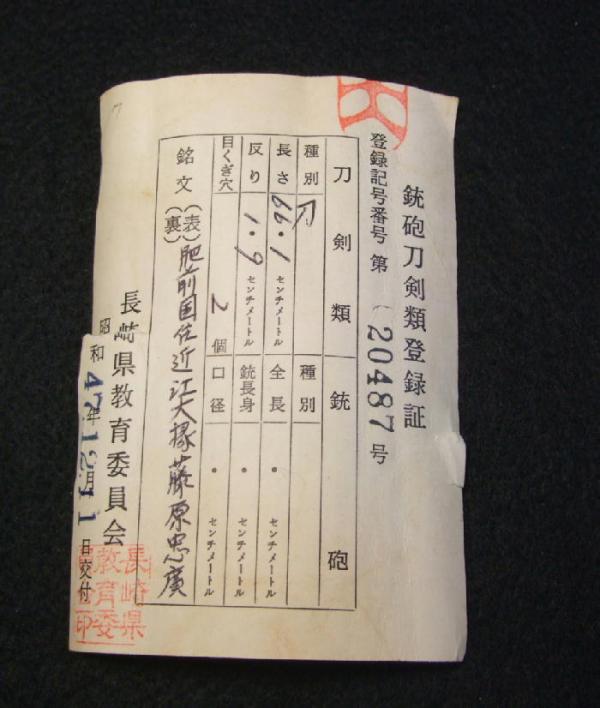 銃砲刀剣類登録証
登録記号番号 第 20487 号
刀剣類 銃砲
種別 刀 種別
長さ 66.1 センチメートル 全長 ・ センチメートル
反り 1.9 センチメートル 銃身長 ・ センチメートル
目くぎ穴 2 個 口径 ・ センチメートル
銘文 (表) 肥前国住近江大掾藤原忠廣
(裏)
長崎県教育委員会
昭和 47年12月11日交付
長崎県
教育委
印